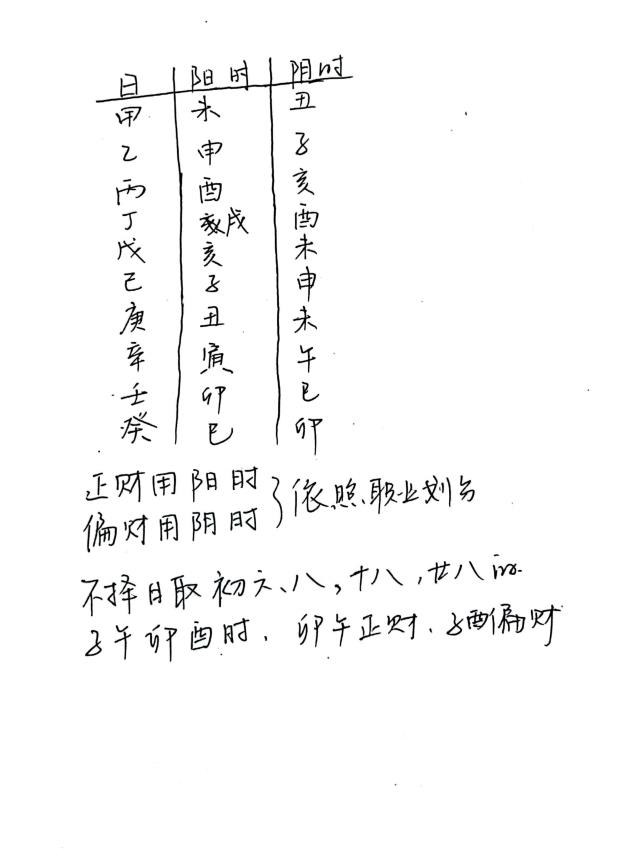 日 阳时 阴时
甲 未 丑
乙 申 子
丙 酉 亥
丁 戌 酉
戊 亥 未
己 子 申
庚 丑 未
辛 寅 午
壬 卯 巳
癸 巳 卯
正财用阳时
偏财用阴时 } 依照职业划分
不择日取初六、八,十八,廿八
子午卯酉时.卯午正财.子酉偏财